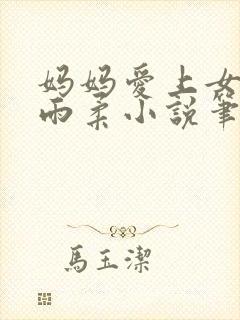 妈妈愛上女
雨柔小説筆
馬玉潔